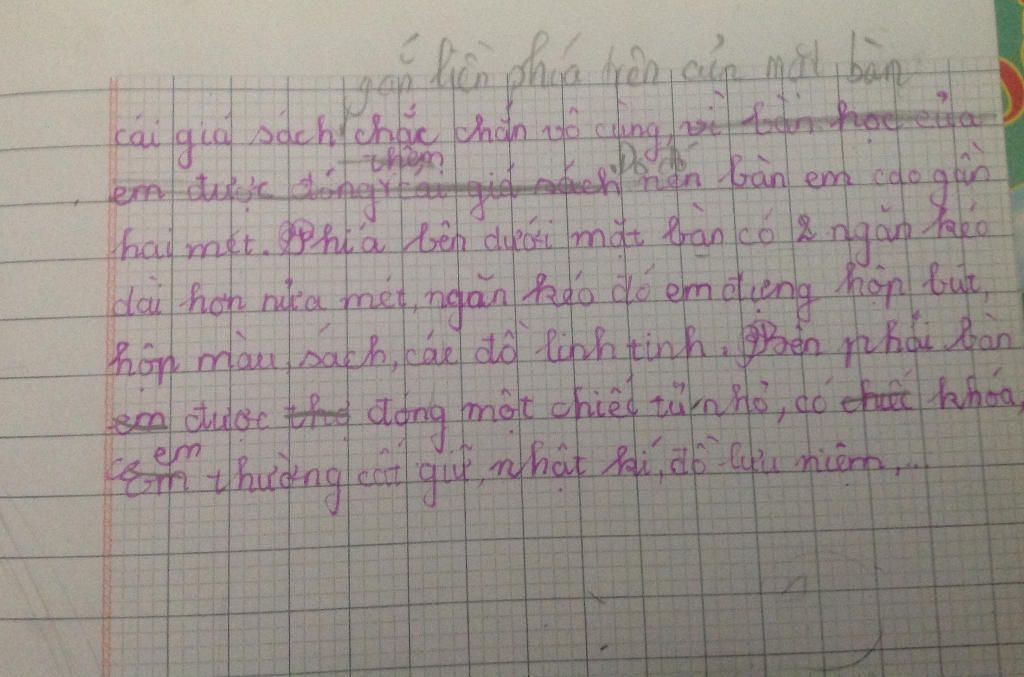 gắn liền phía trên của mặt bàn
cái giá sách chắc chắn vô cùng, vì bàn học của
thêm Do đó
em được đóng cái giá sách nên bàn em cao gần
hai mét. Phía bên dưới mặt bàn có 2 ngăn kéo
dài hơn nửa mét, ngăn kéo đó em đựng hộp bút,
hộp màu, sách, các đồ linh tinh. Bên phải bàn
em được thế đóng một chiếc tủ nhỏ, có chiếc khóa,
em
Em thường cất giữ, nhật kí, đồ lưu niệm,...